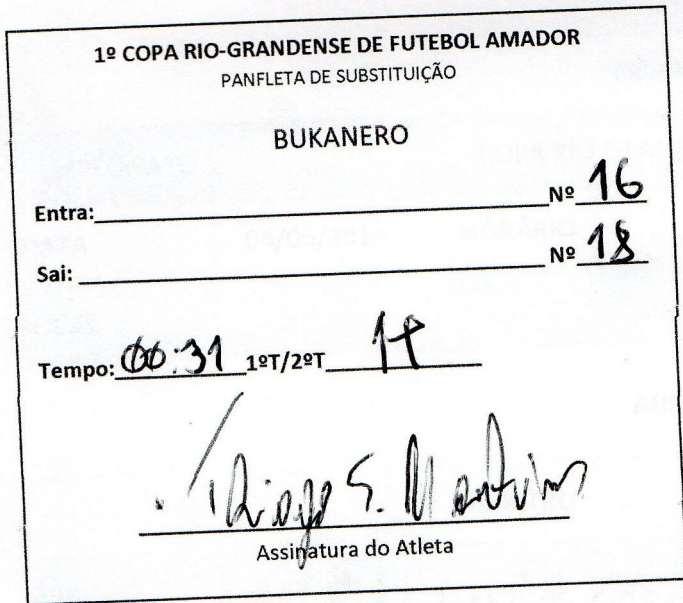 1º COPA RIO-GRANDENSE DE FUTEBOL AMADOR
PANFLETA DE SUBSTITUIÇÃO
BUKANERO
Entra: Nº 16
Sai: Nº 18
Tempo: 00:31 1ºT/2ºT 1T
Thiago S. Martins
Assinatura do Atleta